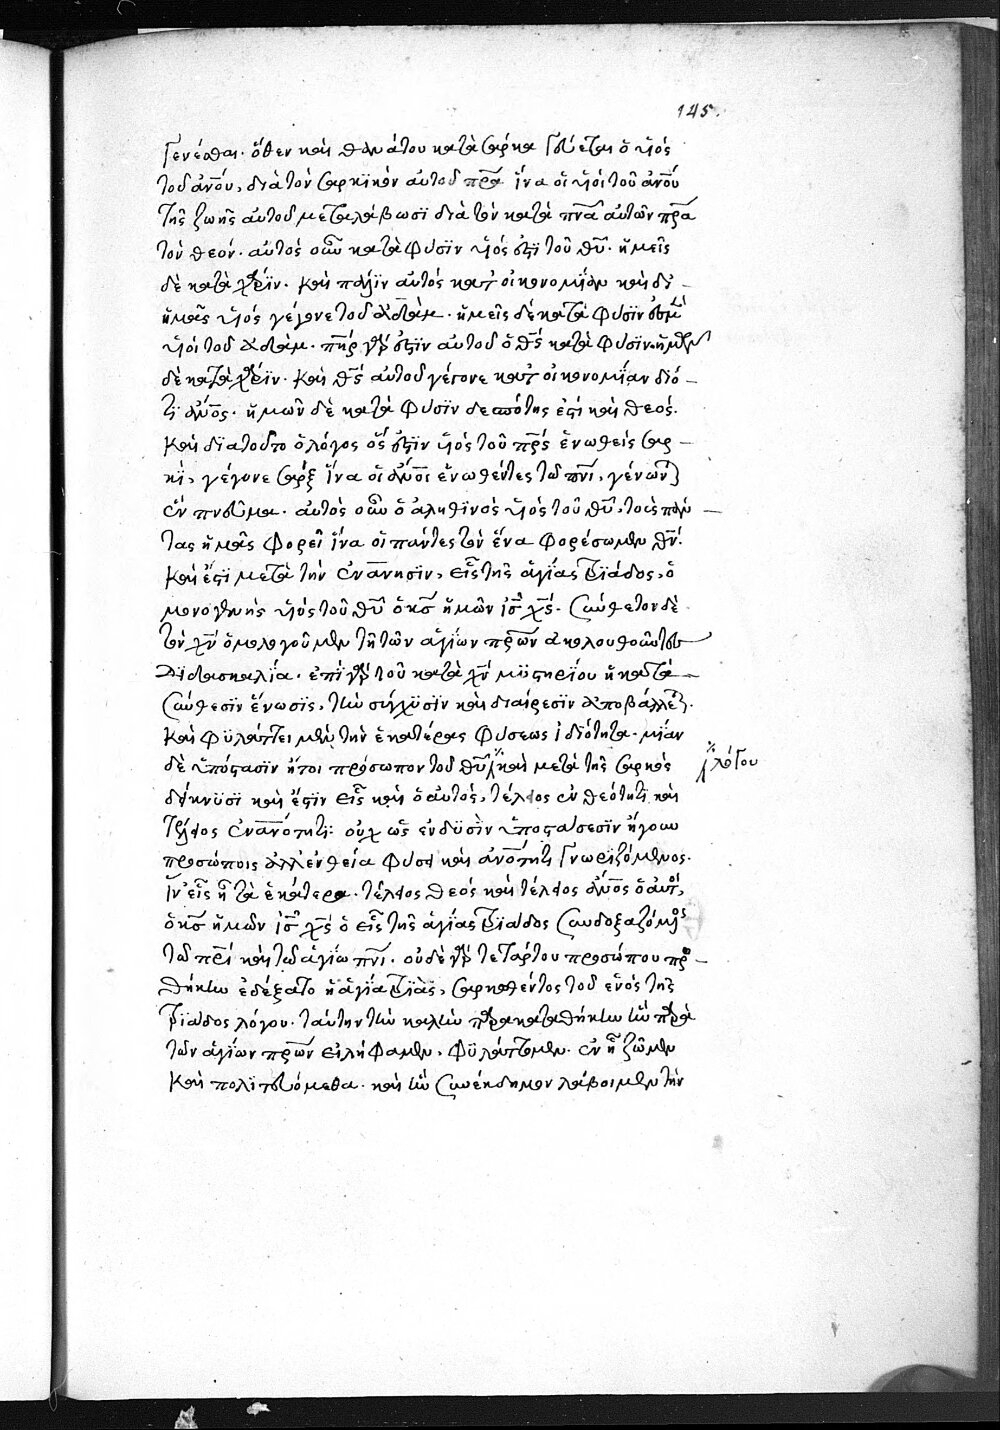 145.
γενέσθαι. ὅθεν καὶ θανάτου κατὰ σάρκα γεύεται ὁ υἱὸς
τοῦ ἀνου, διὰ τὸν σαρκϊκὸν αὐτοῦ πρα ἵνα οἱ υἱοὶ τοῦ ἀνου
τῆς ζωῆς αὐτοῦ μεταλάβωσϊ διὰ τὸν κατὰ πνα αὐτῶν πρα
τὸν θεόν. αὐτὸς οὖν κατὰ φύσϊν υἱός ἐστϊ τοῦ θυ. ἡμεῖς
δὲ κατὰ χάρϊν. καὶ πάλϊν αὐτὸς κατ οἰκονομίαν καὶ δι
ἡμᾶς υἱὸς γέγονε τοῦ ἀδάμ. ἡμεῖς δὲ κατὰ φύσϊν ἐσμὲν
υἱοὶ τοῦ ἀδάμ. πηρ γάρ ἐστϊν αὐτοῦ ὁ θς κατὰ φύσϊν. ἡμῶν
δὲ κατὰ χάρϊν. καὶ θς αὐτοῦ γέγονε κατ οἰκονομίαν διό
τϊ ἄνος. ἡμῶν δὲ κατὰ φύσϊν δεσπότης ἐστὶ καὶ θεός.
καὶ δϊατοῦτο ὁ λόγος ὅς ἐστϊν υἱὸς τοῦ πρς ἑνωθεὶς σαρ
κὶ, γέγονε σὰρξ ἵνα οἱ ἄνοι ἑνωθέντες τῶ πνι, γένωνται
ἓν πνεῦμα. αὐτὸς οὖν ὁ ἀληθινὸς υἱὸς τοῦ θυ, τοὺς πάν
τας ἡμᾶς φορεῖ ἵνα οἱ πάντες τὸν ἕνα φορέσωμεν θν.
καὶ ἔστϊ μετὰ τὴν ἐνανησϊν, εἷς τῆς ἁγίας τρϊάδος, ὁ
μονογενὴς υἱὸς τοῦ θυ ὁ κς ἡμῶν ις χς. σύνθετον δὲ
τὸν χν ὁμολογοῦμεν τῆ τῶν ἁγίων πρων ἀκολουθοῦντες
διδασκαλία. ἐπὶ γὰρ τοῦ κατὰ χν μϋστηρίου ἡ κατὰ
σύνθεσϊν ἕνωσϊς, τὴν σύγχϋσϊν καὶ διαίρεσϊν ἀποβάλλει.
καὶ φϋλάττει μὲν τὴν ἑκατέρας φύσεως ἰδιότητα. μίαν
δὲ ὑπόστασϊν ἤτοι πρόσωπον τοῦ θυ καὶ μετὰ τῆς σαρκὸς
λόγου
δείκνυσϊ καὶ ἔστϊν εἷς καὶ ὁ αὐτὸς, τέλειος ἐν θεότητϊ καὶ
τέλειος ἐν ἀνότητϊ: οὐχ ὡς ἐν δϋσὶν ὑποστάσεσϊν ἤγουν
προσώποις ἀλλ' ἐν θεία φύσει καὶ ἀνότητι γνωριζόμενος.
ἵν' εἷς ἦ τὰ ἑκάτερα. τέλειος θεὸς καὶ τέλειος ἄνος ὁ αὐτὸς,
ὁ κς ἡμῶν ις χς ὁ εἷς τῆς ἁγίας τρϊάδος συνδοξαζόμενος
τῶ πρι καὶ τῶ ἁγίω πνι. οὐδὲ γὰρ τετάρτου προσώπου προσ
θήκην ἐδέξατο ἡ ἁγία τρϊὰς, σαρκωθέντος τοῦ ἑνὸς τῆς
τρϊάδος λόγου. ταύτην τὴν καλὴν παρακαταθήκην ἣν παρὰ
τῶν ἁγίων πρων εἰλήφαμεν, φϋλάττομεν. ἐν ἧ ζῶμεν
καὶ πολϊτευόμεθα. καὶ ἣν συνέκδημον λάβοιμεν τὴν